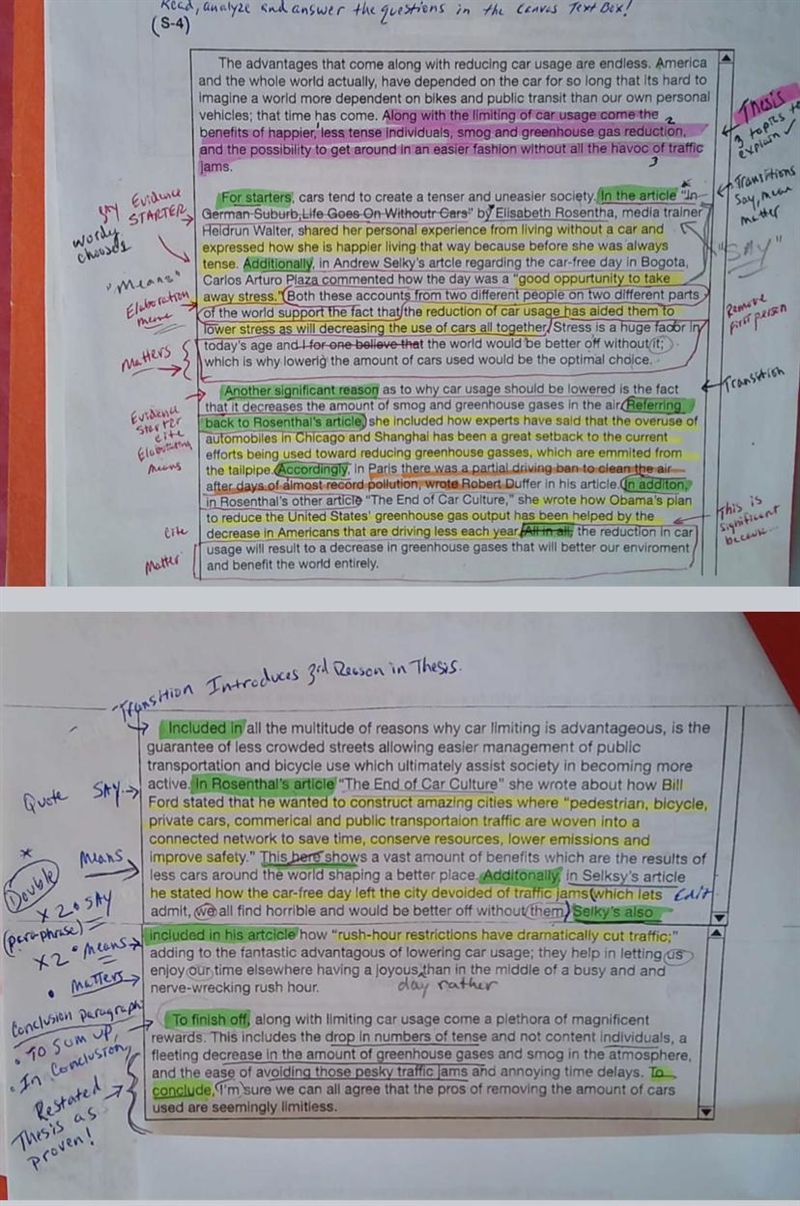 Read, analyze and answer the questions in the Canvas Text Box!
(S-4)
The advantages that come along with reducing car usage are endless. America
and the whole world actually, have depended on the car for so long that its hard to
imagine a world more dependent on bikes and public transit than our own personal
vehicles; that time has come. Along with the limiting of car usage come the
benefits of happier, less tense individuals, smog and greenhouse gas reduction,
and the possibility to get around in an easier fashion without all the havoc of traffic
jams.
1
2
3
Thesis
3 topics to
explain ✓
For starters, cars tend to create a tenser and uneasier society. In the article "In
German Suburb,Life Goes On Withoutr Cars" by Elisabeth Rosentha, media trainer
Heidrun Walter, shared her personal experience from living without a car and
expressed how she is happier living that way because before she was always
tense. Additionally, in Andrew Selky's artcle regarding the car-free day in Bogota,
Carlos Arturo Plaza commented how the day was a "good oppurtunity to take
away stress." Both these accounts from two different people on two different parts
of the world support the fact that the reduction of car usage has aided them to
lower stress as will decreasing the use of cars all together. Stress is a huge facor in
today's age and I for one believe that the world would be better off without it;
which is why lowerig the amount of cars used would be the optimal choice.
Say Evidence
STARTER
wordy
chooses
"Means"
Elaboration
means
Matters
Transitions
Say, mean
matter
"SAY"
Remove
first person
Another significant reason as to why car usage should be lowered is the fact
that it decreases the amount of smog and greenhouse gases in the air. Referring
back to Rosenthal's article, she included how experts have said that the overuse of
automobiles in Chicago and Shanghai has been a great setback to the current
efforts being used toward reducing greenhouse gasses, which are emmited from
the tailpipe. Accordingly, in Paris there was a partial driving ban to clean the air
after days of almost record pollution, wrote Robert Duffer in his article. In additon,
in Rosenthal's other article "The End of Car Culture," she wrote how Obama's plan
to reduce the United States' greenhouse gas output has been helped by the
decrease in Americans that are driving less each year. All in all, the reduction in car
usage will result to a decrease in greenhouse gases that will better our enviroment
and benefit the world entirely.
Evidence
Starter
cite
Elaborating
means
cite
Matter
Transition
This is
significant
because...
Transition Introduces 3rd Reason in Thesis.
Included in all the multitude of reasons why car limiting is advantageous, is the
guarantee of less crowded streets allowing easier management of public
transportation and bicycle use which ultimately assist society in becoming more
active. In Rosenthal's article "The End of Car Culture" she wrote about how Bill
Ford stated that he wanted to construct amazing cities where "pedestrian, bicycle,
private cars, commerical and public transportaion traffic are woven into a
connected network to save time, conserve resources, lower emissions and
improve safety." This here shows a vast amount of benefits which are the results of
less cars around the world shaping a better place. Additonally, in Selksy's article
he stated how the car-free day left the city devoided of traffic jams (which lets
admit, we all find horrible and would be better off without them.) Selky's also
included in his artcicle how "rush-hour restrictions have dramatically cut traffic;"
adding to the fantastic advantagous of lowering car usage; they help in letting us
enjoy our time elsewhere having a joyous than in the middle of a busy and and
nerve-wrecking rush hour.
day rather
Edit
Quote SAY
Means
*
Double
x 2 • SAY
(paraphrase)
x 2 • Means
• Matters
To finish off, along with limiting car usage come a plethora of magnificent
rewards. This includes the drop in numbers of tense and not content individuals, a
fleeting decrease in the amount of greenhouse gases and smog in the atmosphere,
and the ease of avoiding those pesky traffic jams and annoying time delays. To
conclude, I'm sure we can all agree that the pros of removing the amount of cars
used are seemingly limitless.
Conclusion paragraph
• To sum up,
• In Conclusion,
Restated
Thesis as
proven!